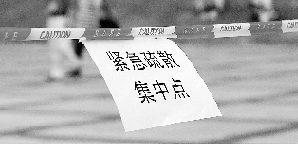 CAUTION CAUTION CAUTION CAUTION
紧急疏散
集中点